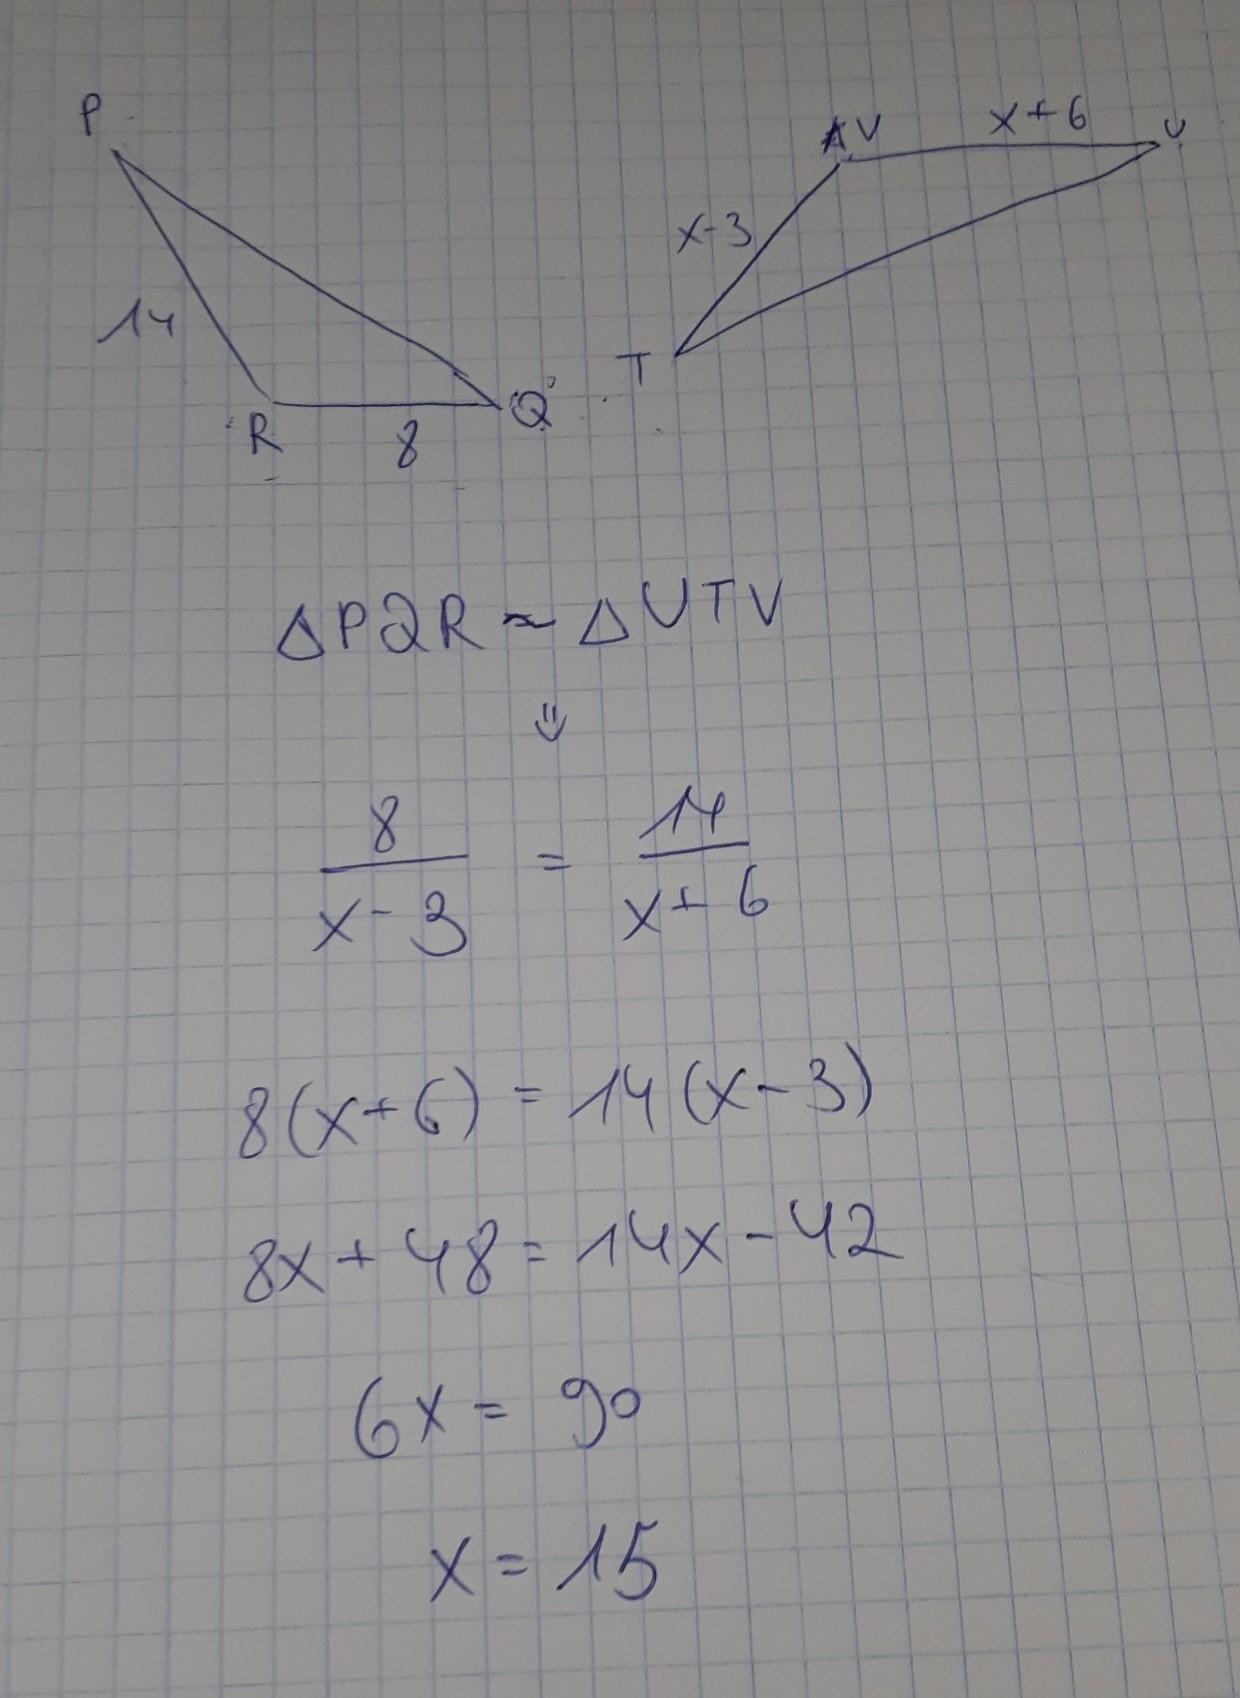 P
V x+6 U
x-3
14
T
R 8 Q
ΔPQR ~ ΔUTV
⇓
8/(x-3) = 14/(x+6)
8(x+6) = 14(x-3)
8x + 48 = 14x - 42
6x = 90
x = 15